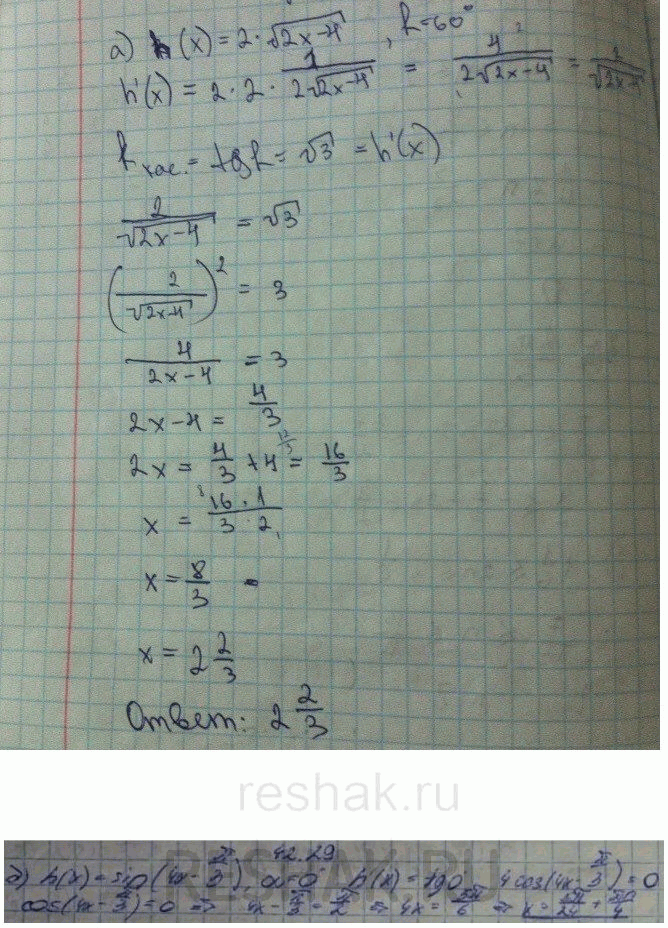 а) h(x) = 2·√(2x-4), α=60°
h'(x) = 2·2· 1/(2√(2x-4)) = 4/(2√(2x-4)) = 2/√(2x-4)
k кас. = tg α = √3 = h'(x)
2/√(2x-4) = √3
(2/√(2x-4))² = 3
4/(2x-4) = 3
2x-4 = 4/3
2x = 4/3 + 4 = 16/3
x = (16·1)/(3·2)
x = 8/3
x = 2 2/3
Ответ: 2 2/3
reshak.ru
42.29
б) h(x) = sin(4x - π/3), α=0° h'(x) = tg0° 4cos(4x - π/3) = 0
cos(4x - π/3) = 0 ⇒ 4x - π/3 = π/2 ⇒ 4x = 5π/6 ⇒ x = 5π/24 + πn/4